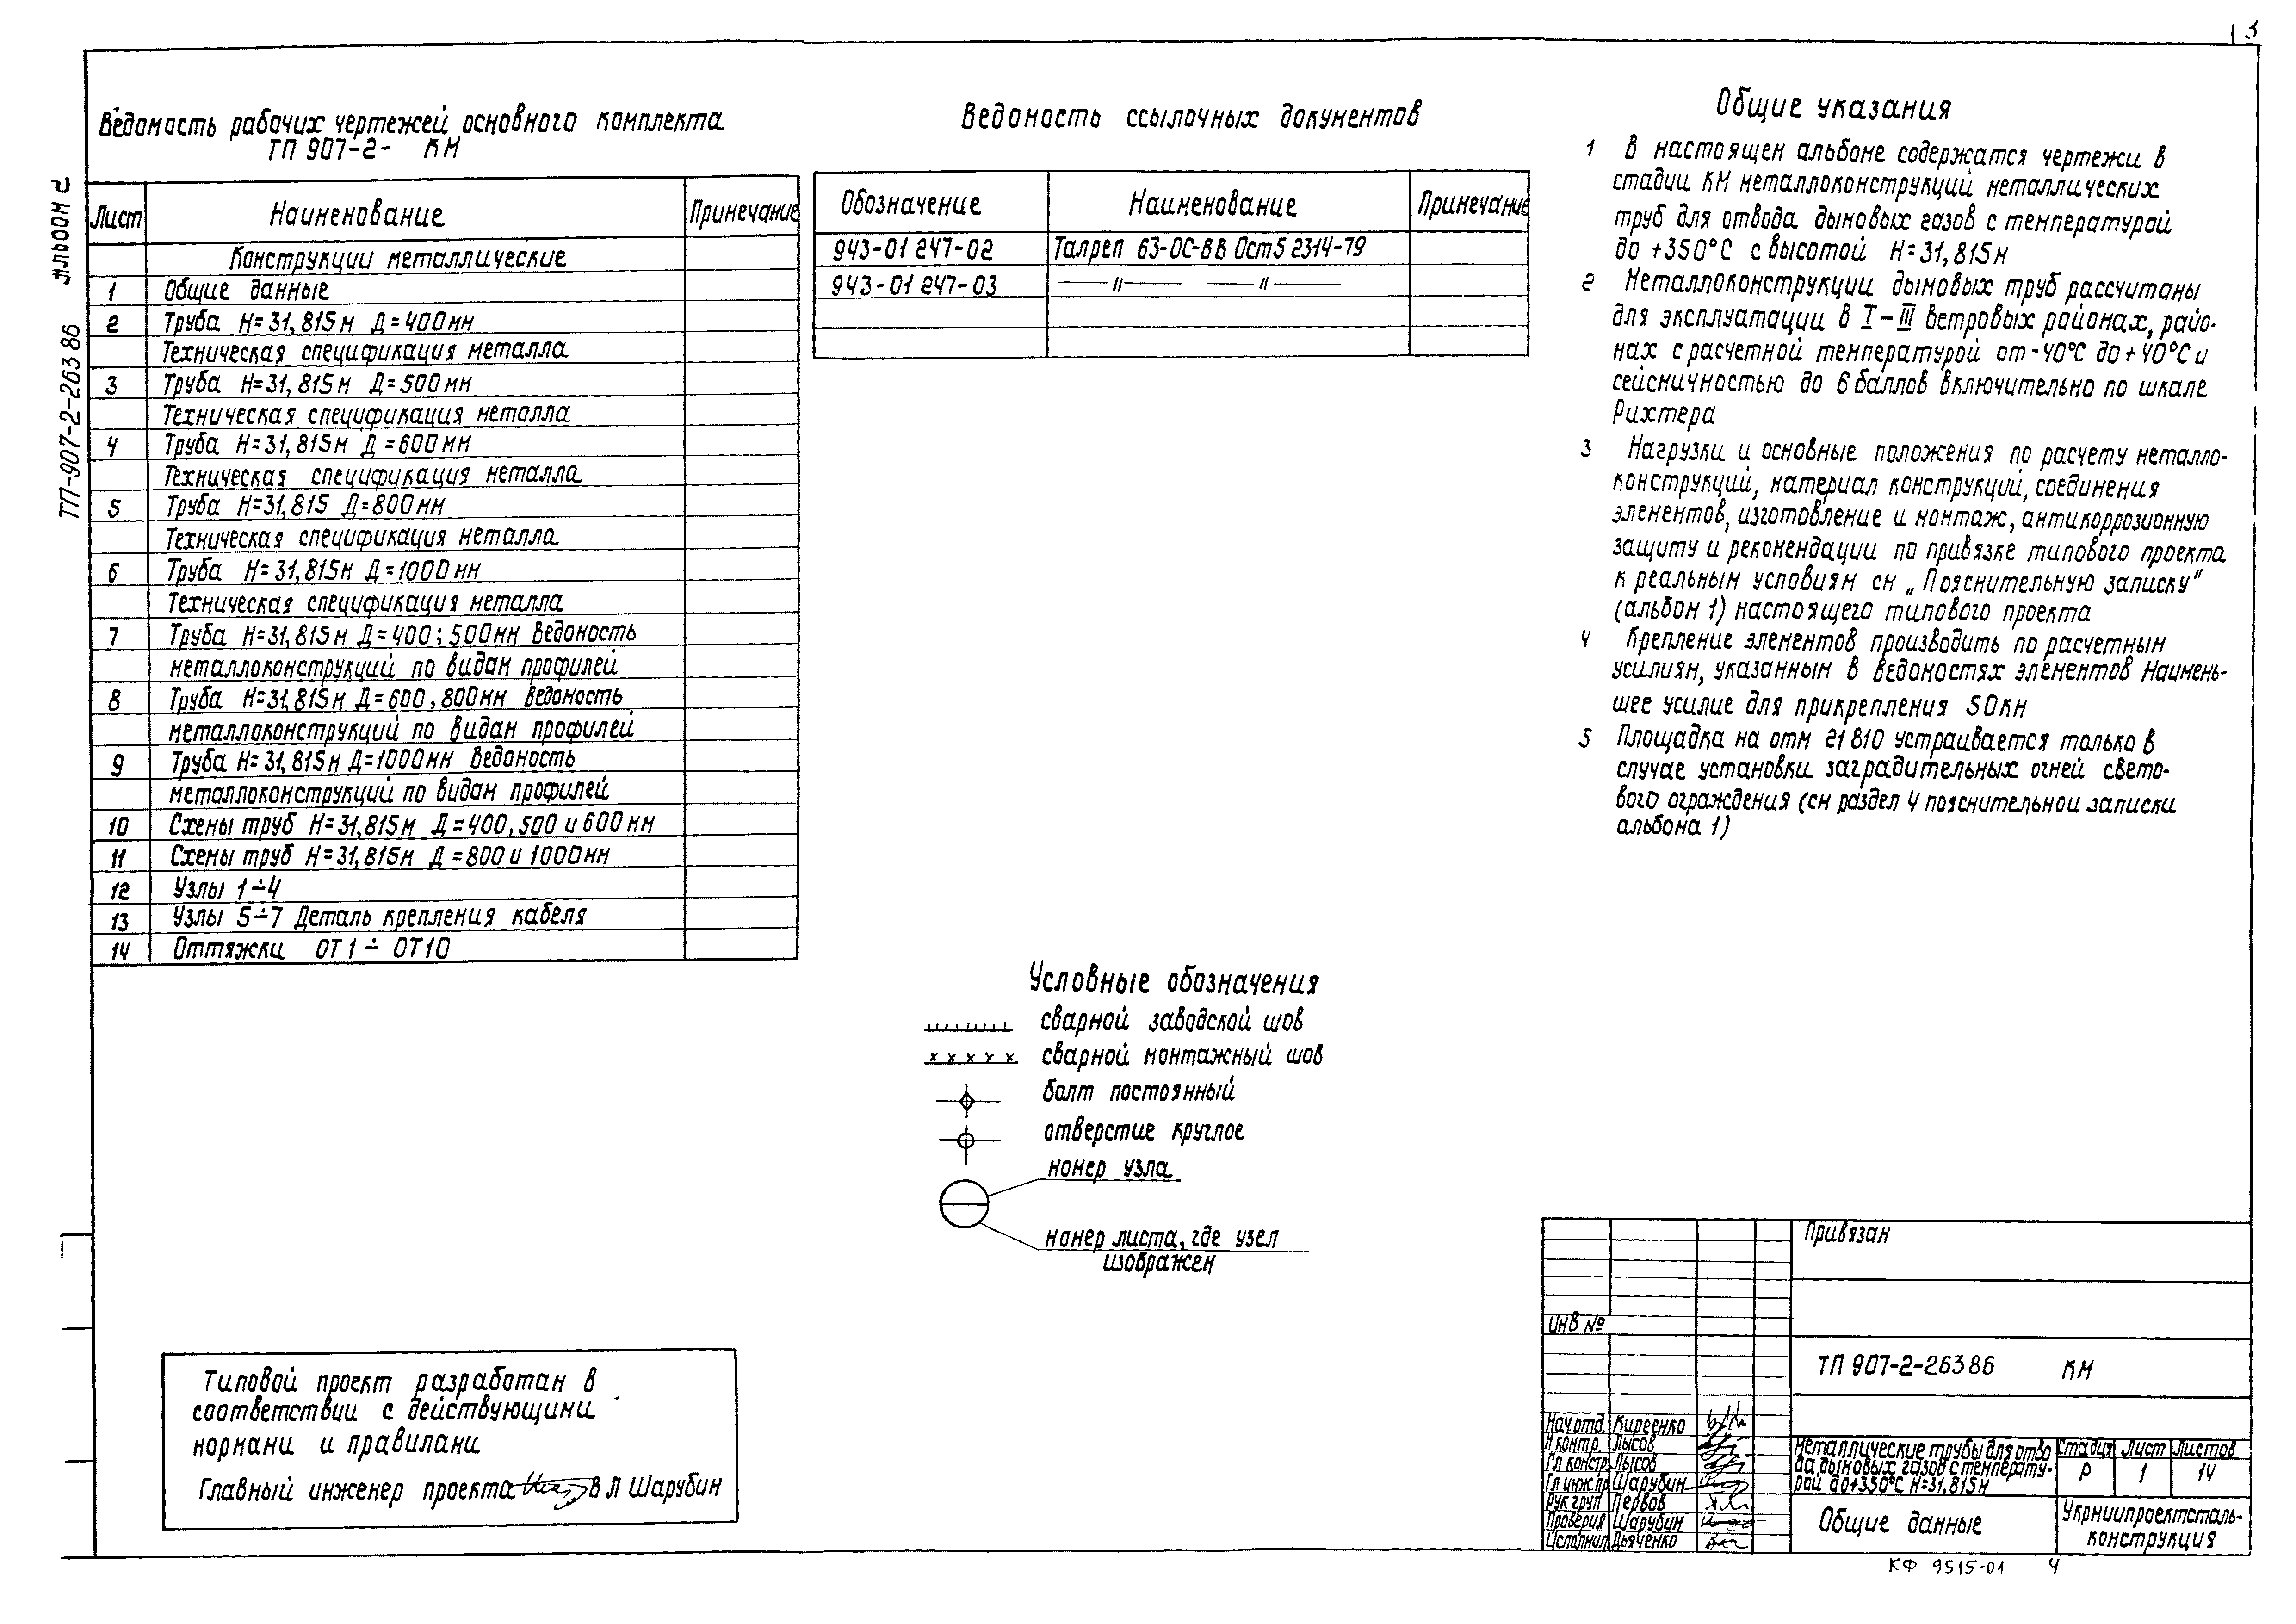 3
Альбом 2
ТП-907-2-263 86
Ведомость рабочих чертежей основного комплекта
ТП 907-2- КМ
Лист Наименование Примечание
Конструкции металлические
1 Общие данные
2 Труба Н=31,815м Д=400мм
Техническая спецификация металла
3 Труба Н=31,815м Д=500мм
Техническая спецификация металла
4 Труба Н=31,815м Д=600мм
Техническая спецификация металла
5 Труба Н=31,815 Д=800мм
Техническая спецификация металла
6 Труба Н=31,815м Д=1000мм
Техническая спецификация металла
7 Труба Н=31,815м Д=400; 500мм Ведомость
металлоконструкций по видам профилей
8 Труба Н=31,815м Д=600, 800мм Ведомость
металлоконструкций по видам профилей
9 Труба Н=31,815м Д=1000мм Ведомость
металлоконструкций по видам профилей
10 Схемы труб Н=31,815м Д=400, 500 и 600мм
11 Схемы труб Н=31,815м Д=800 и 1000мм
12 Узлы 1÷4
13 Узлы 5÷7 Деталь крепления кабеля
14 Оттяжки ОТ1÷ОТ10
Ведомость ссылочных документов
Обозначение Наименование Примечание
943-01 247-02 Талреп 63-ОС-ВВ Ост5 2314-79
943-01 247-03 —〃— —〃—
Общие указания
1 В настоящем альбоме содержатся чертежи в
стадии КМ металлоконструкций металлических
труб для отвода дымовых газов с температурой
до +350°С с высотой Н=31,815м
2 Металлоконструкции дымовых труб рассчитаны
для эксплуатации в I-III ветровых районах, райо-
нах с расчетной температурой от -40°С до +40°С и
сейсмичностью до 6 баллов включительно по шкале
Рихтера
3 Нагрузки и основные положения по расчету металло-
конструкций, материал конструкций, соединения
элементов, изготовление и монтаж, антикоррозионную
защиту и рекомендации по привязке типового проекта
к реальным условиям см „Пояснительную записку"
(альбом 1) настоящего типового проекта
4 Крепление элементов производить по расчетным
усилиям, указанным в ведомостях элементов Наимень-
шее усилие для прикрепления 50кн
5 Площадка на отм 21 810 устраивается только в
случае установки заградительных огней свето-
вого ограждения (см раздел 4 пояснительной записки
альбома 1)
Условные обозначения
сварной заводской шов
сварной монтажный шов
болт постоянный
отверстие круглое
номер узла
номер листа, где узел
изображен
Типовой проект разработан в
соответствии с действующими
нормами и правилами
Главный инженер проекта В Л Шарубин
Привязан
Инв №
ТП 907-2-263 86 КМ
Нач отд. Киреенко
Н контр. Лысов
Гл констр Лысов
Гл инж пр Шарубин
Рук груп Первов
Проверил Шарубин
Исполнил Дьяченко
Металлические трубы для отво
да дымовых газов с температу-
рой до +350°С Н=31,815м
Стадия Лист Листов
Р 1 14
Общие данные
Укрниипроектсталь-
конструкция
КФ 9515-01 4